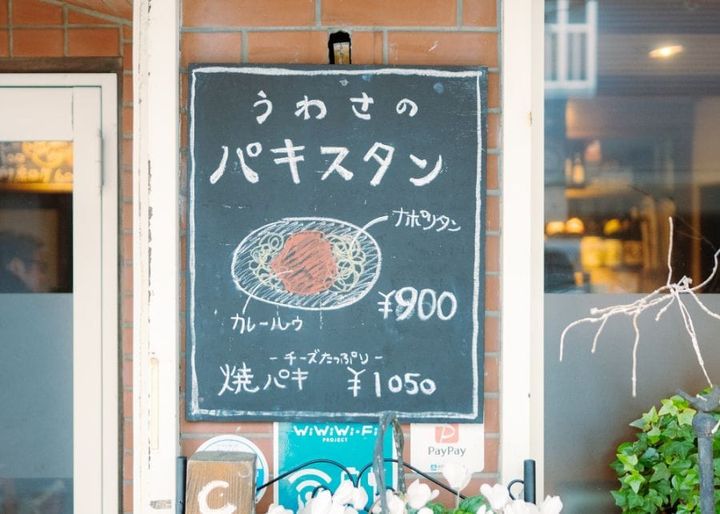 うわさの
パキスタン
ナポリタン
¥900
カレールゥ
-チーズたっぷり-
焼パキ ¥1050
WiWiWi-Fi
PROJECT
PayPay
C